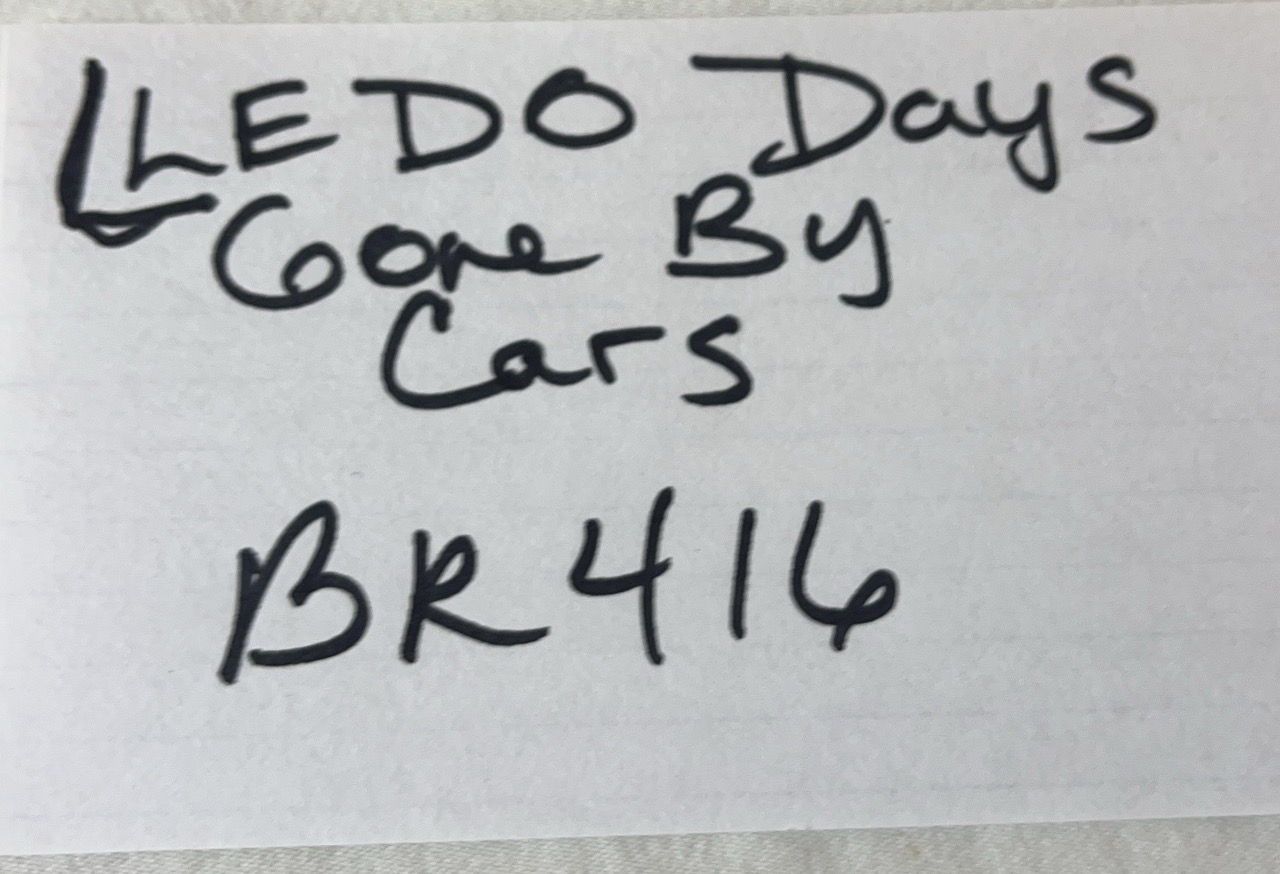 LLEDO Days
Gone By
Cars
BR416